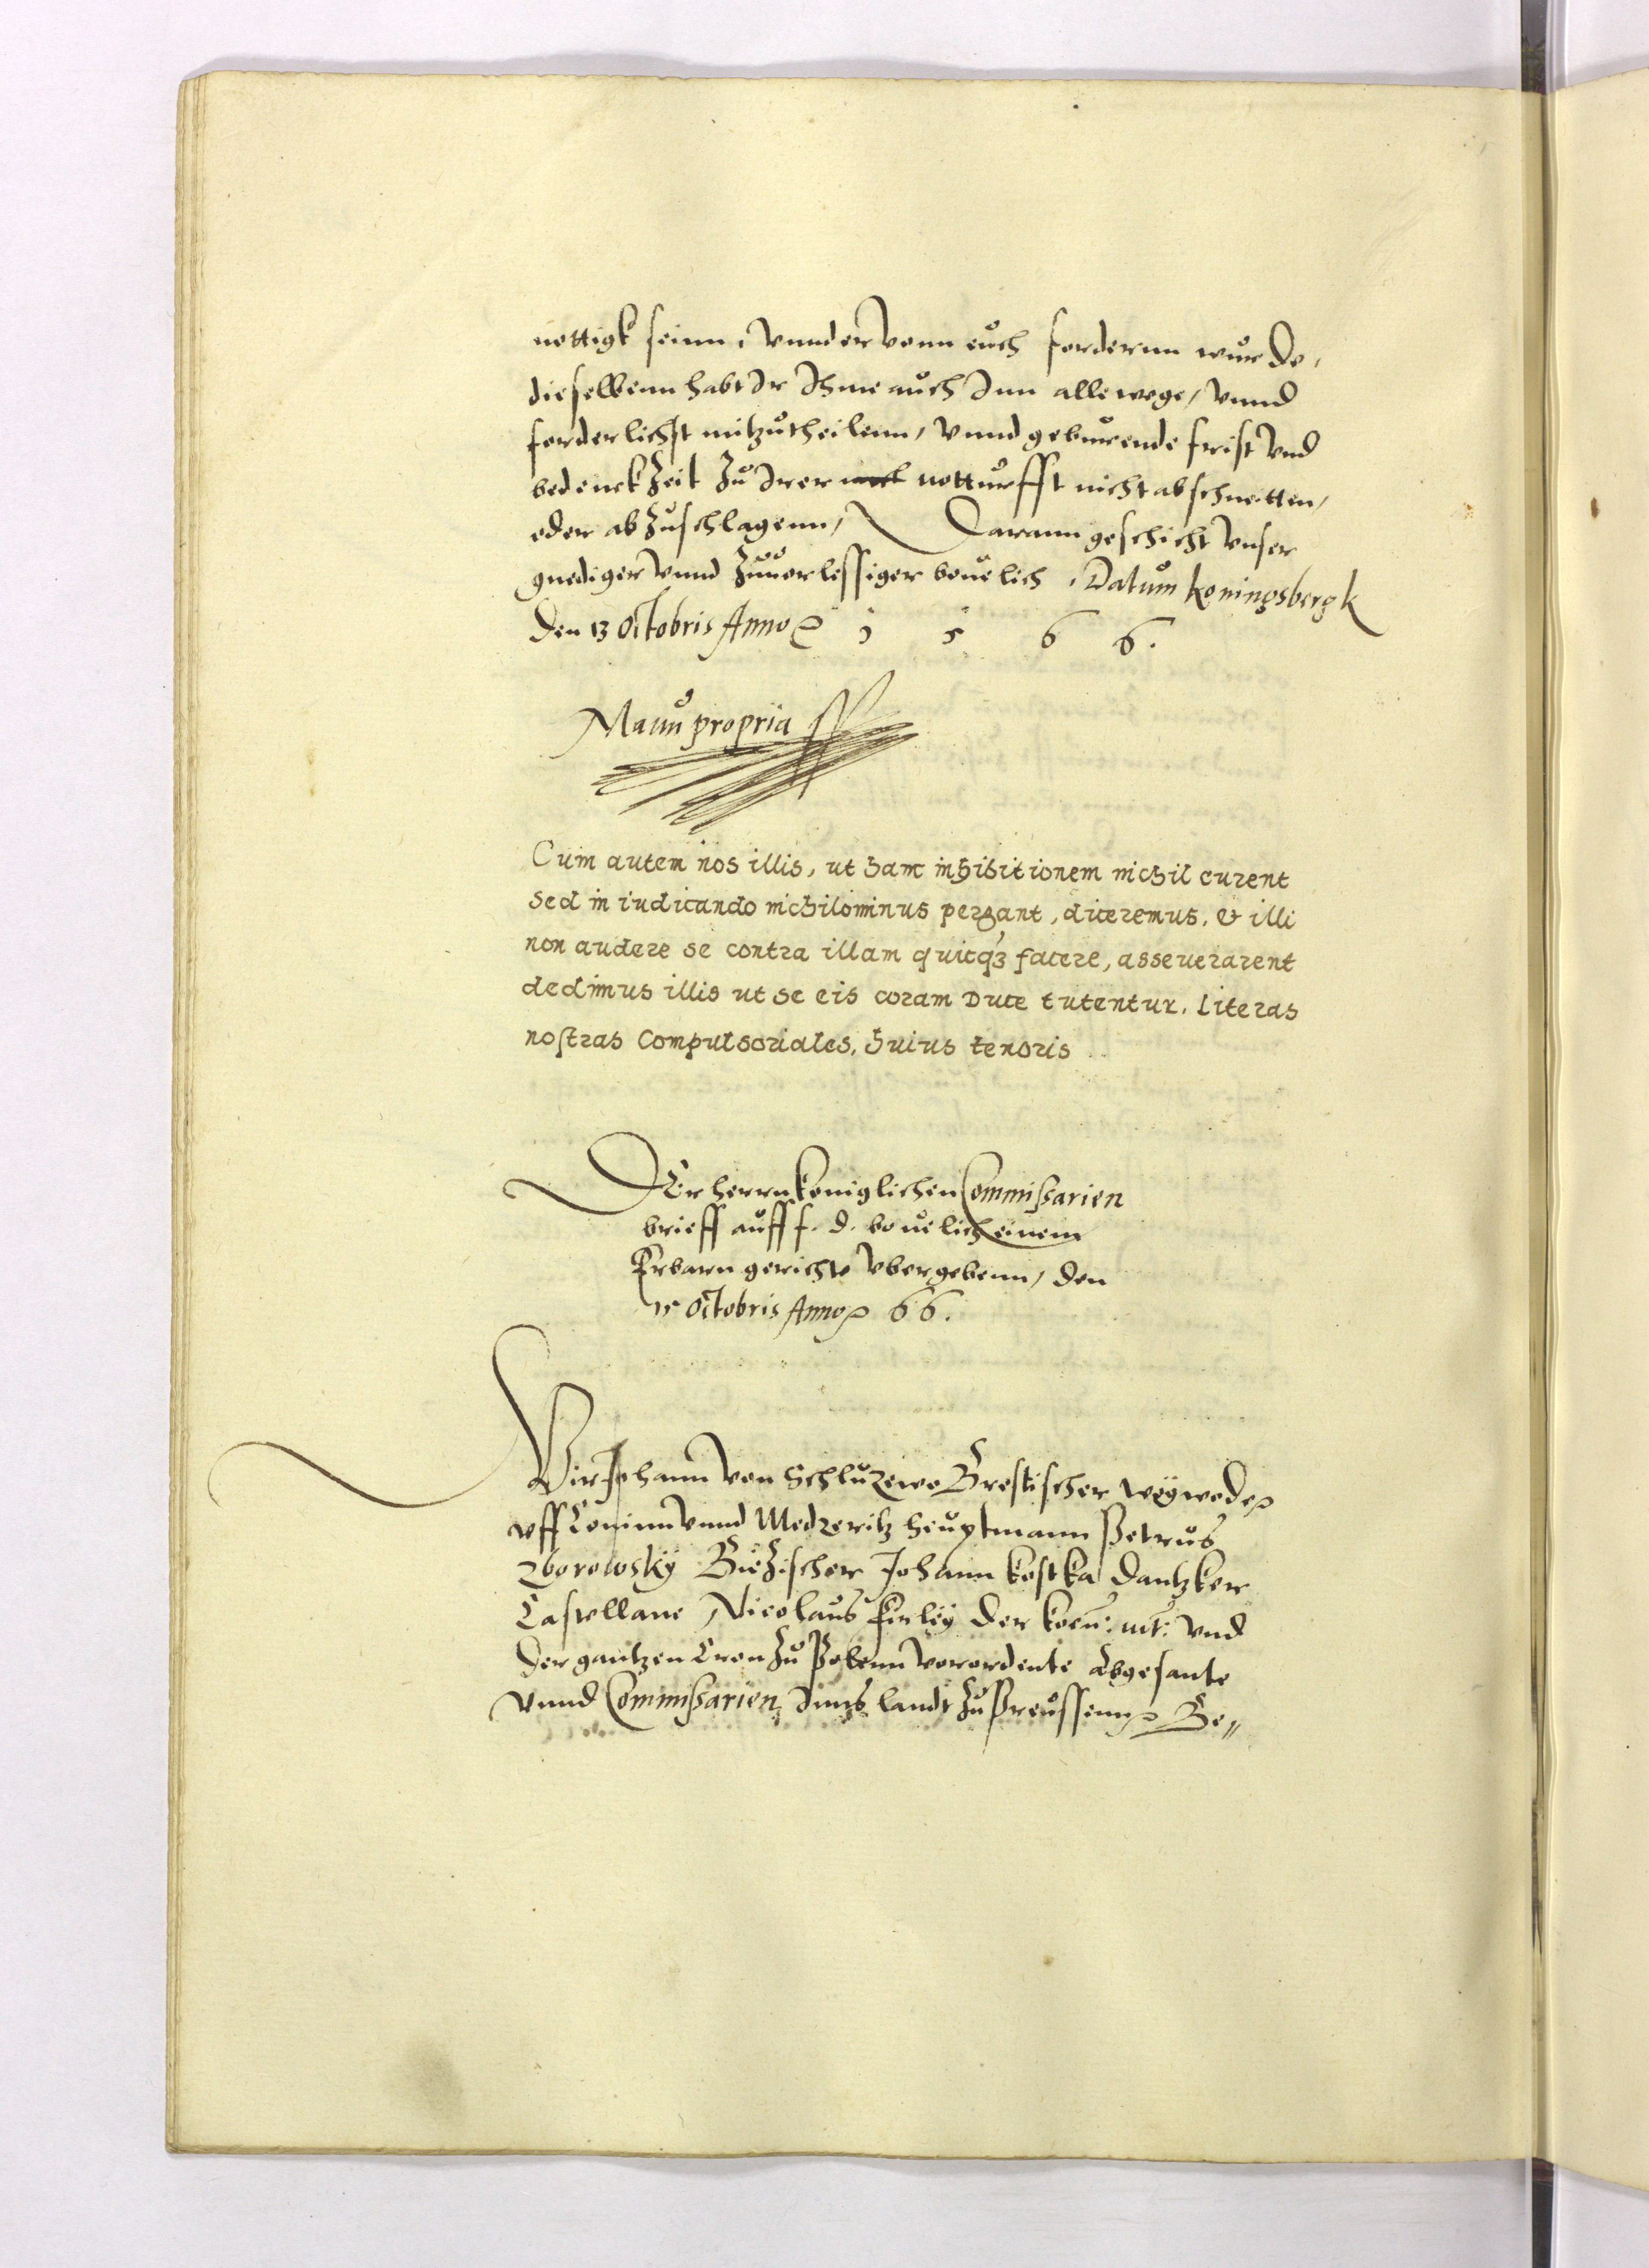 nottigk seinn, vnnd er vonn euch fordernn wurde,
dieselbenn habt Ir Ihme auch Inn allewege, vnnd
forderlichst mitzutheilenn, vnnd geburende frist vnd
bedenckzeit zu Irer notturfft nicht abschneitten,
oder abzuschlagenn, Darann geschicht vnser
gnediger vnnd zuuorlessiger beuelich, Datum Koningsbergk
den 13 Octobris Anno 1 5 6 6.
Manu propria
Cum autem nos illis, ut hanc inhibitionem nichil curent
sed in iudicando nichilominus pergant, diceremus, & illi
non audere se contra illam quicq3 facere, asseuerarent
dedimus illis ut se eis coram Duce tutentur. Literas
nostras Compulsoriales, huius tenoris
Der herrn koniglichen Commissarien
brieff auff f. d. beuelich einem
Erbarn gerichte vbergebenn, den
15 Octobris Anno 66.
Wir Johann von Schluzewo Brestischer weywode
vff Coninn vnnd Medzeritz heuptmann Petrus
Zborowsky Biezischer Johann Kostka Dantzker
Castellane, Nicolaus Firley der koen: mt: vnd
der gantzen Cron zu Polenn vorordente Abgesante
vnnd Commissarien Inns landt zu Preussenn Be„